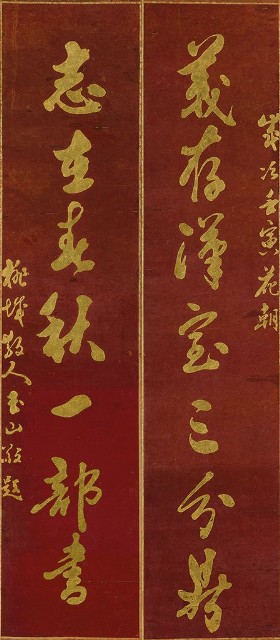 歲次壬寅花朝
義存漢室三分鼎
志在春秋一部書
桃城散人玉山敬題